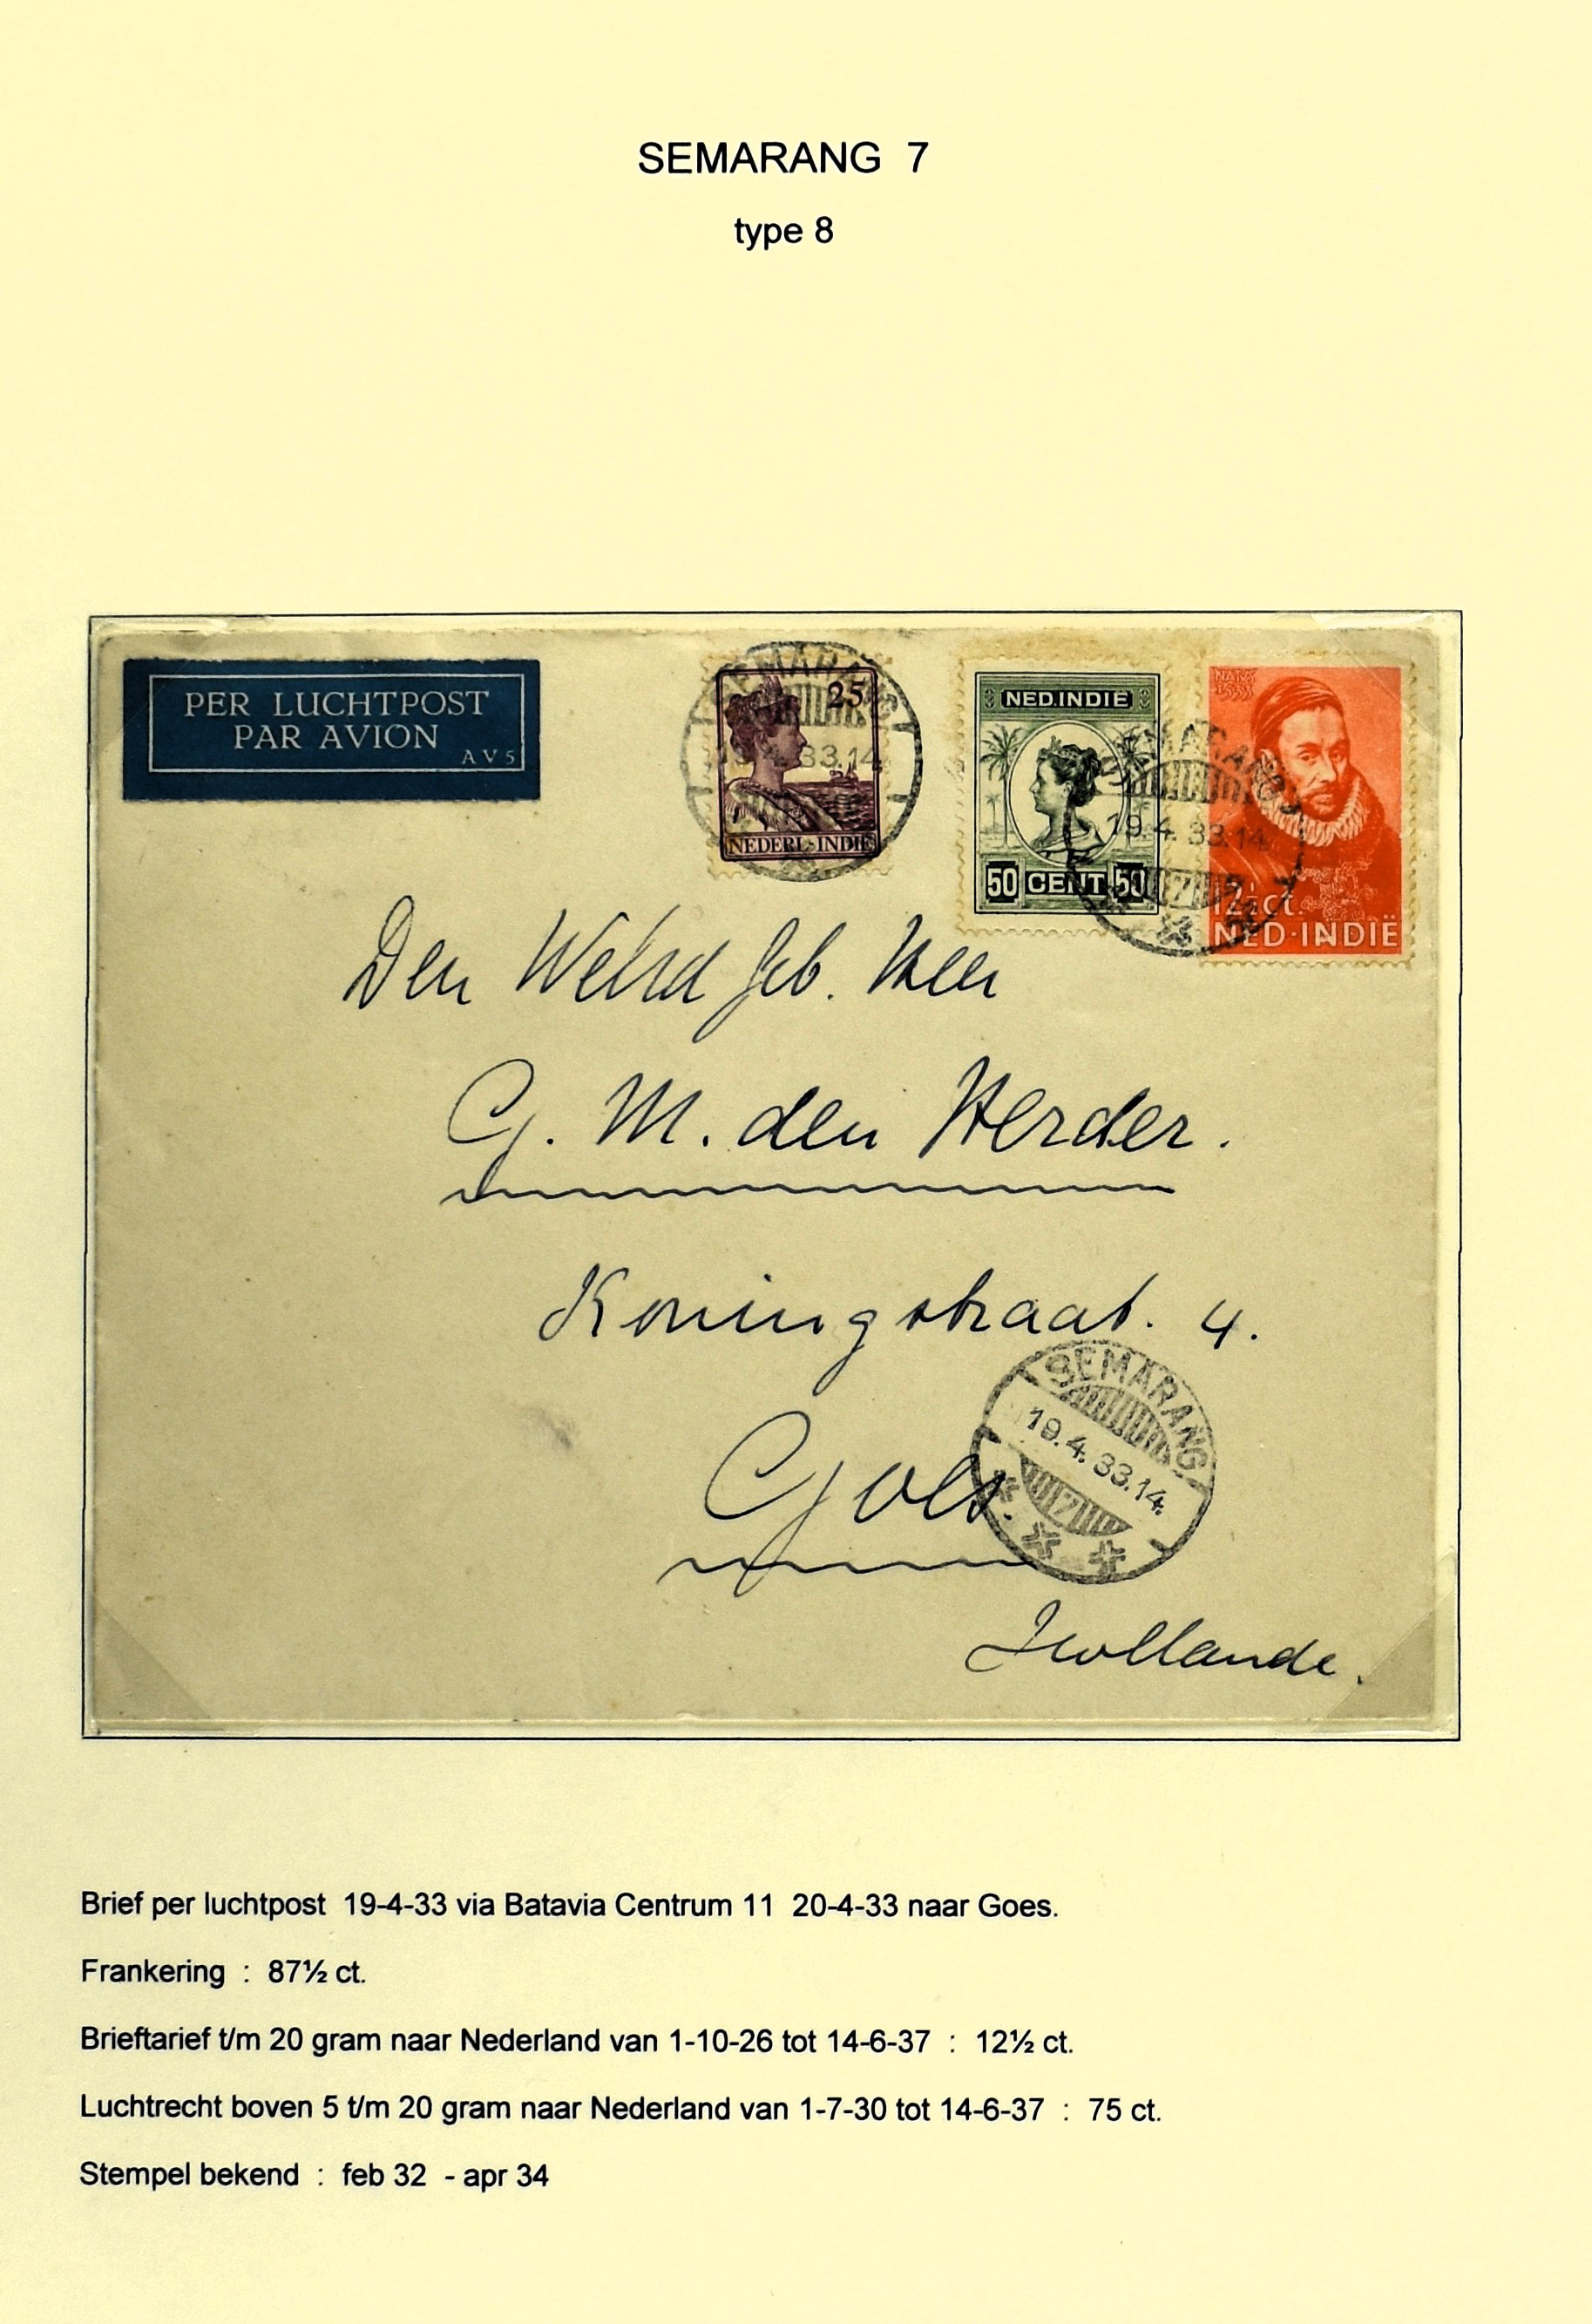 SEMARANG 7
type 8
PER LUCHTPOST
PAR AVION
AV5
SEMARANG
25
19.4.33.14
NEDERL-INDIË
NED.INDIË
50 CENT 50
SEMARANG
19.4.33.14
7
NATUS
1533
12½ct.
NED·INDIË
Den Weled Geb. Heer
G. M. den Herder.
Koningstraat. 4.
Goes.
SEMARANG
19.4.33.14.
7
Hollande.
Brief per luchtpost 19-4-33 via Batavia Centrum 11 20-4-33 naar Goes.
Frankering : 87½ ct.
Brieftarief t/m 20 gram naar Nederland van 1-10-26 tot 14-6-37 : 12½ ct.
Luchtrecht boven 5 t/m 20 gram naar Nederland van 1-7-30 tot 14-6-37 : 75 ct.
Stempel bekend : feb 32 - apr 34